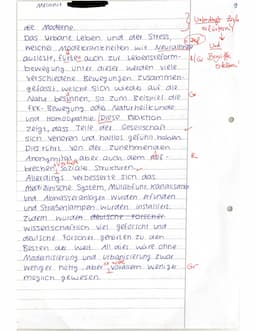 die Moderne.
Das urbane Leben und der Stress,
welcher Modekrankheiten wie Neurasthenie
auslöste, führte auch zur Lebensreform-
bewegung. Unter dieser werden viele
verschiedene Bewegungen zusammen-
gefasst, welche sich wieder auf die
Natur besinnen, so zum Beispiel die
FKK- Bewegung oder Naturheilkunde
und Homöopathie. Diese Reaktion
zeigt, dass Teile der Gesellschaft
sich verloren und haltlos gefühlt haben.
Dies rührt von der zunehmenden
Anonymität, aber auch dem
brechen sozialer Strukturen.
Allerdings verbesserte sich das
Medizinische System, Müllabfuhr, Kanalisation
und Abwasseranlagen wurden erfunden
und Straßenlampen wurden installiert.
Zudem wurden deutsche Forscher
wissenschaftlich viel geforscht und
deutsche Forscher gehörten zu den
Besten der Welt. All dies wäre ohne
Modernisierung und Urbanisierung zwar
weniger nötig, aber vorallem weniger
möglich gewesen.
Und
Begriffe
Gr
R
Gr